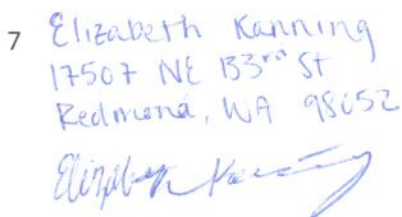 7 Elizabeth Kanning
17507 NE 133rd St
Redmond, WA 98052
Elizabeth Kanning